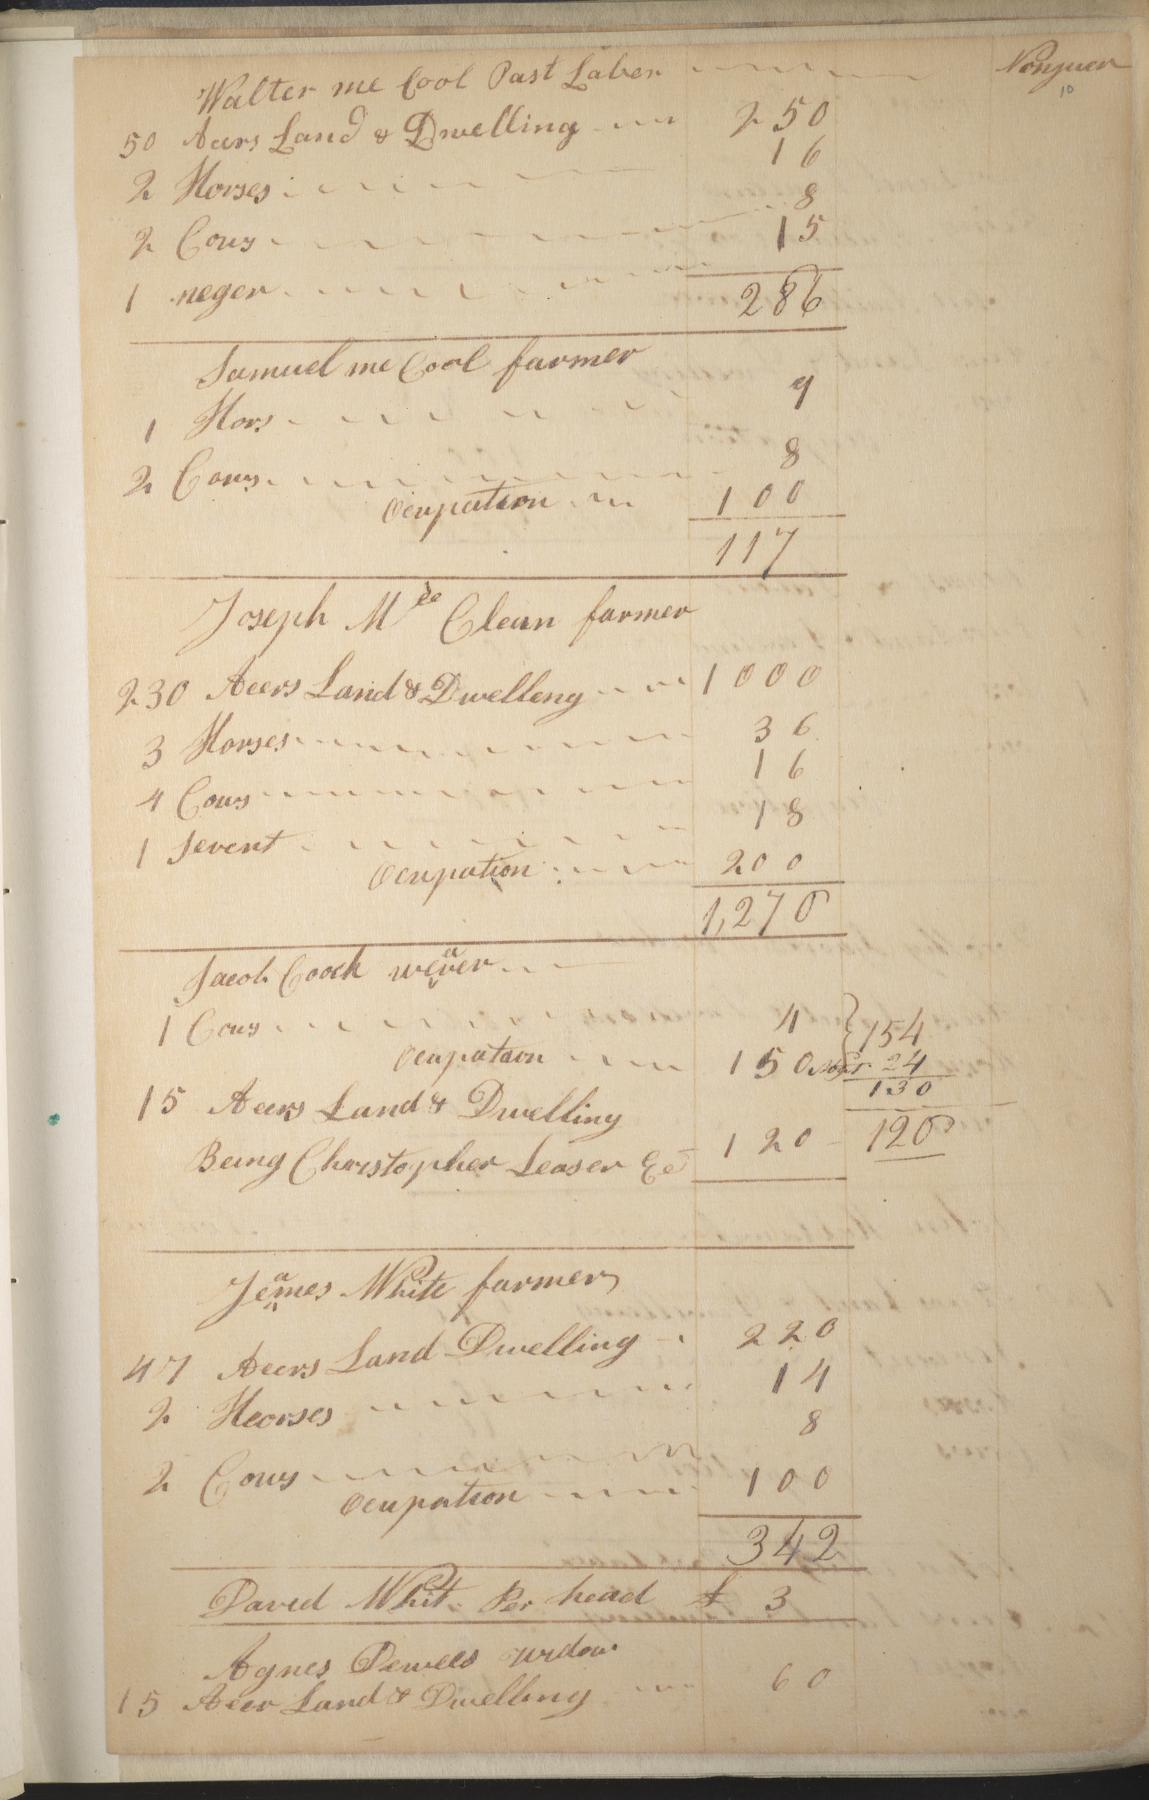 Walter mc Cool Past Laber
10
50 Acers Land & Dwelling 250
2 Horses 16
2 Cows 8
1 neger 15
286
Samuel mc Cool farmer
1 Hors 9
2 Cows 8
Ocupation 100
117
Joseph Mc Clean farmer
230 Aeers Land & Dwelleng 1000
3 Horses 36
4 Cows 16
1 Servent 18
Ocupation 200
1,270
Jacob Cooch weaver
1 Cows 4 } 154
Ocupation 150 24
130
15 Aeers Land & Dwelling
Being Christopher Leaser Es 120 120
James White farmer
47 Aeers Land Dwelling 220
2 Heorses 14
2 Cows 8
Ocupation 100
342
David Whit Per head $ 3
Agnes Dewees widow
15 Acer Land & Dwelling 60